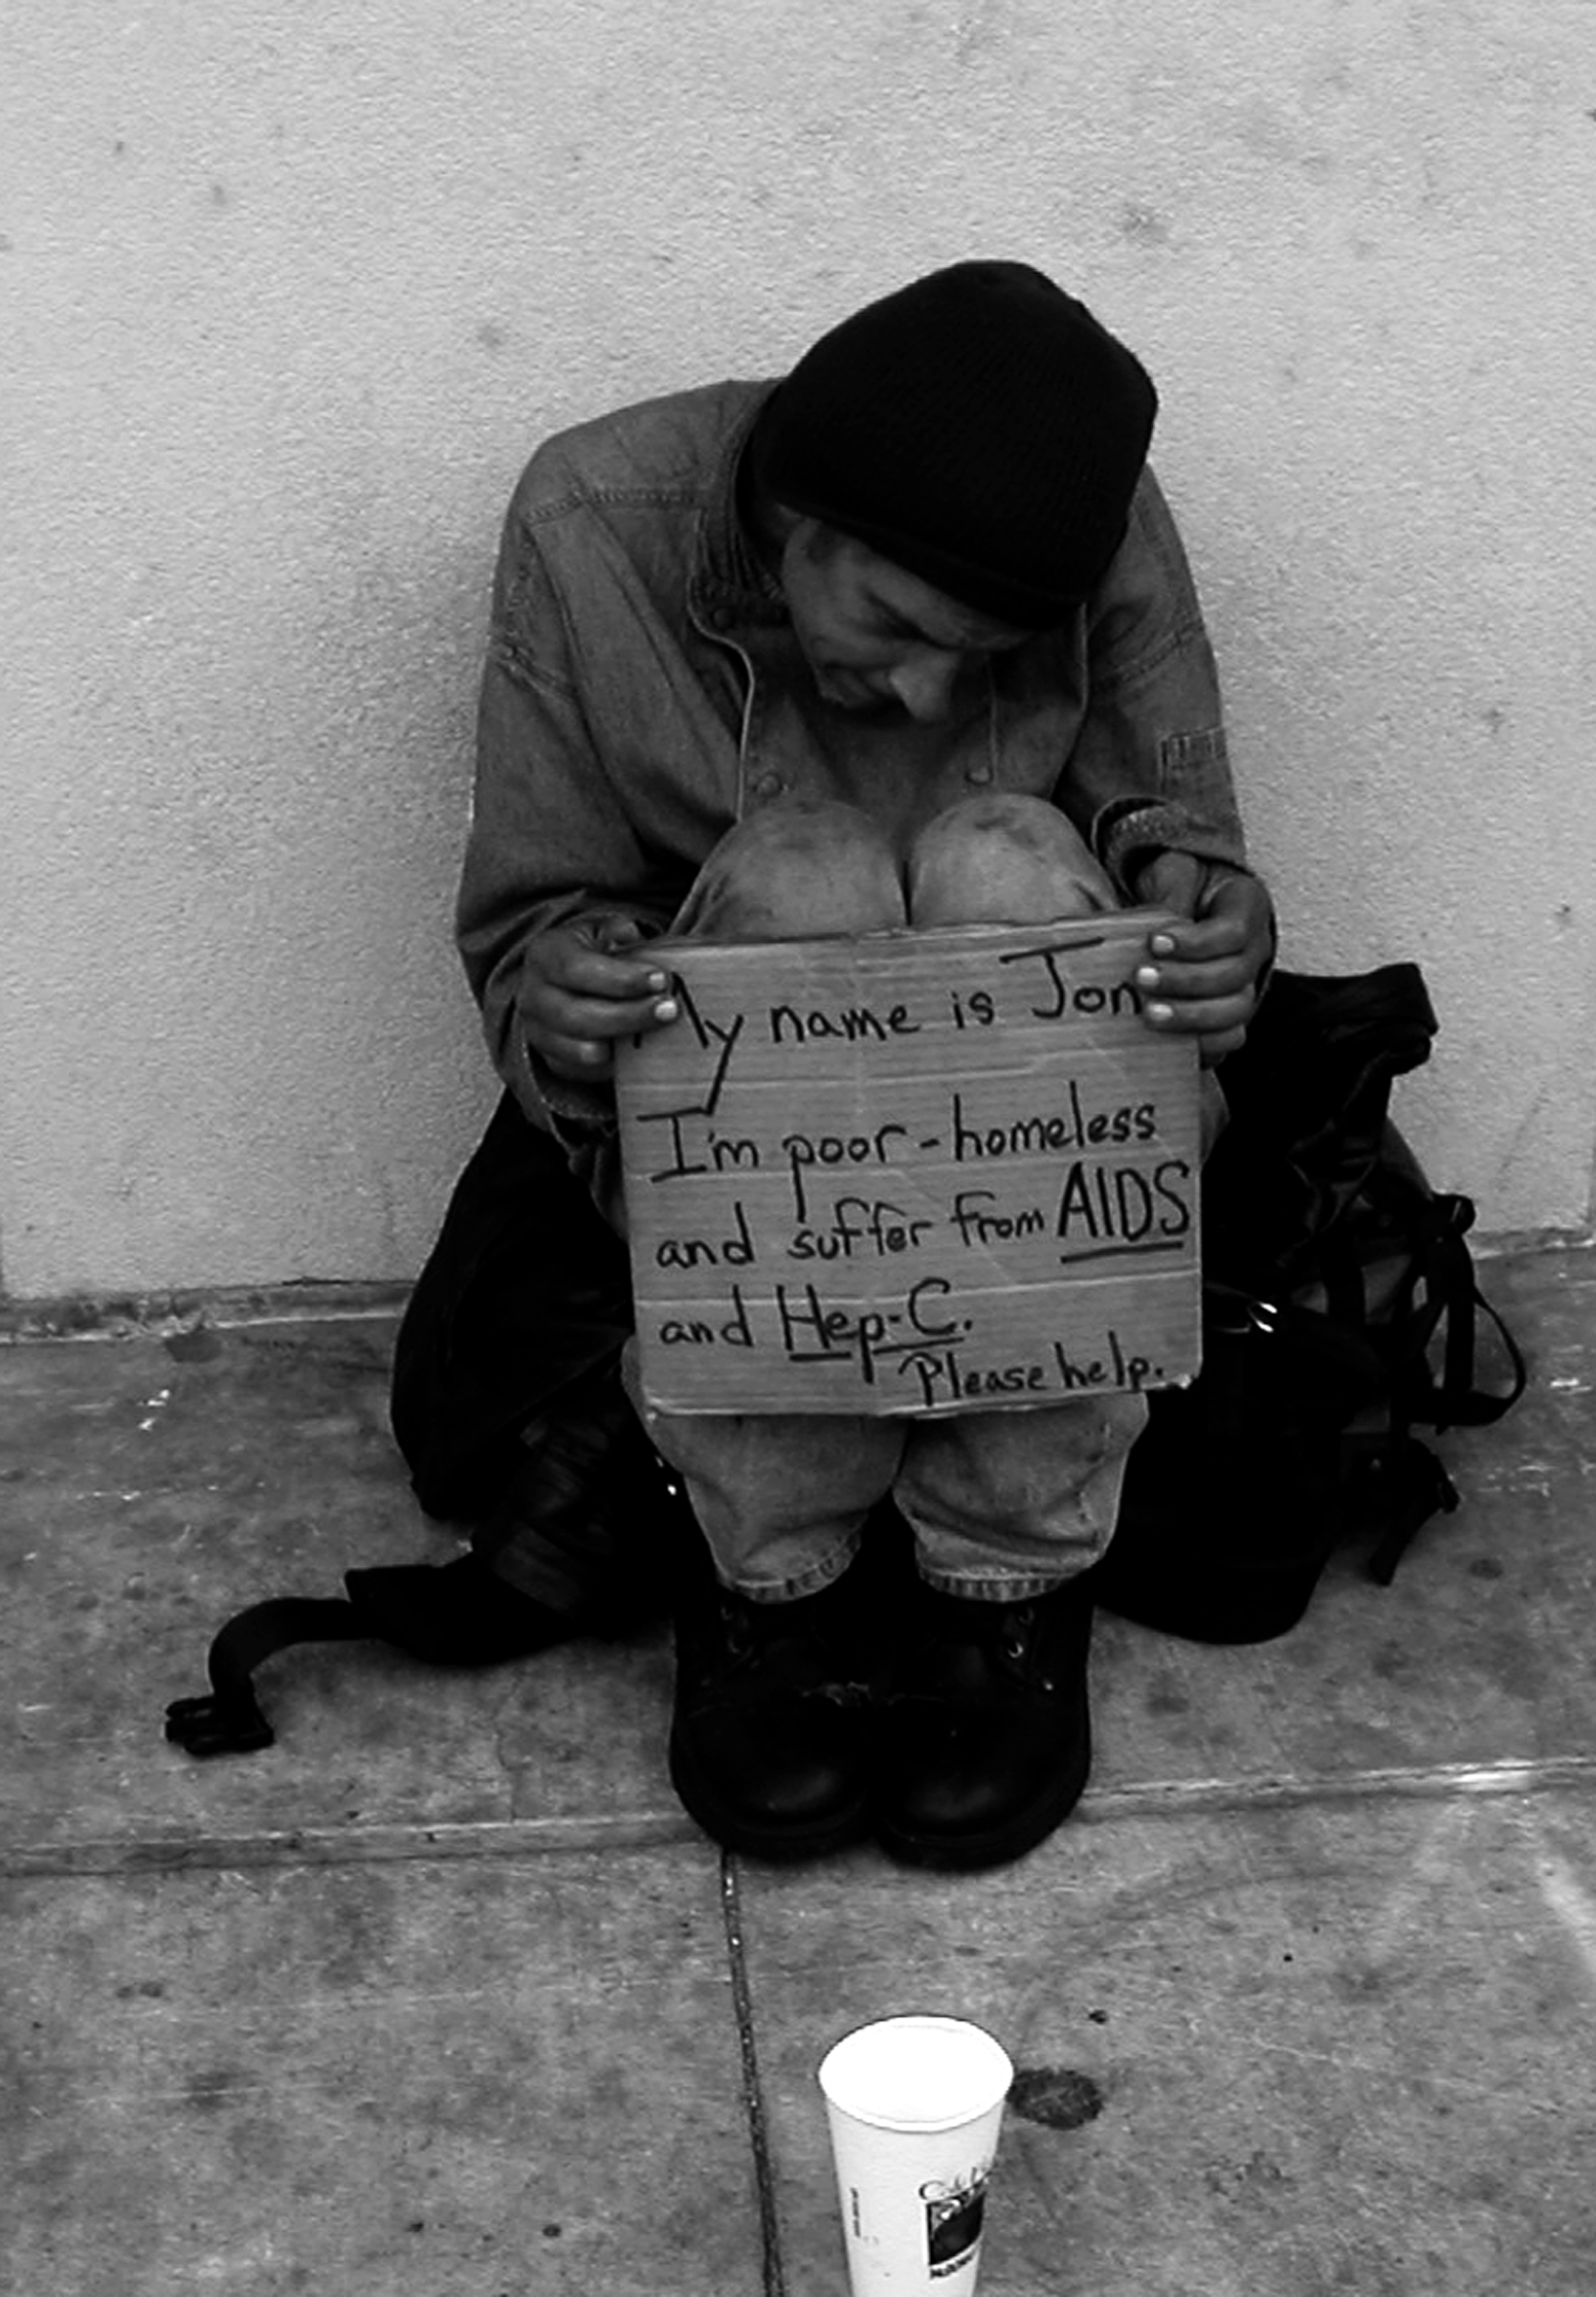 My name is Jon
I'm poor-homeless
and suffer from AIDS
and Hep-C.
Please help.